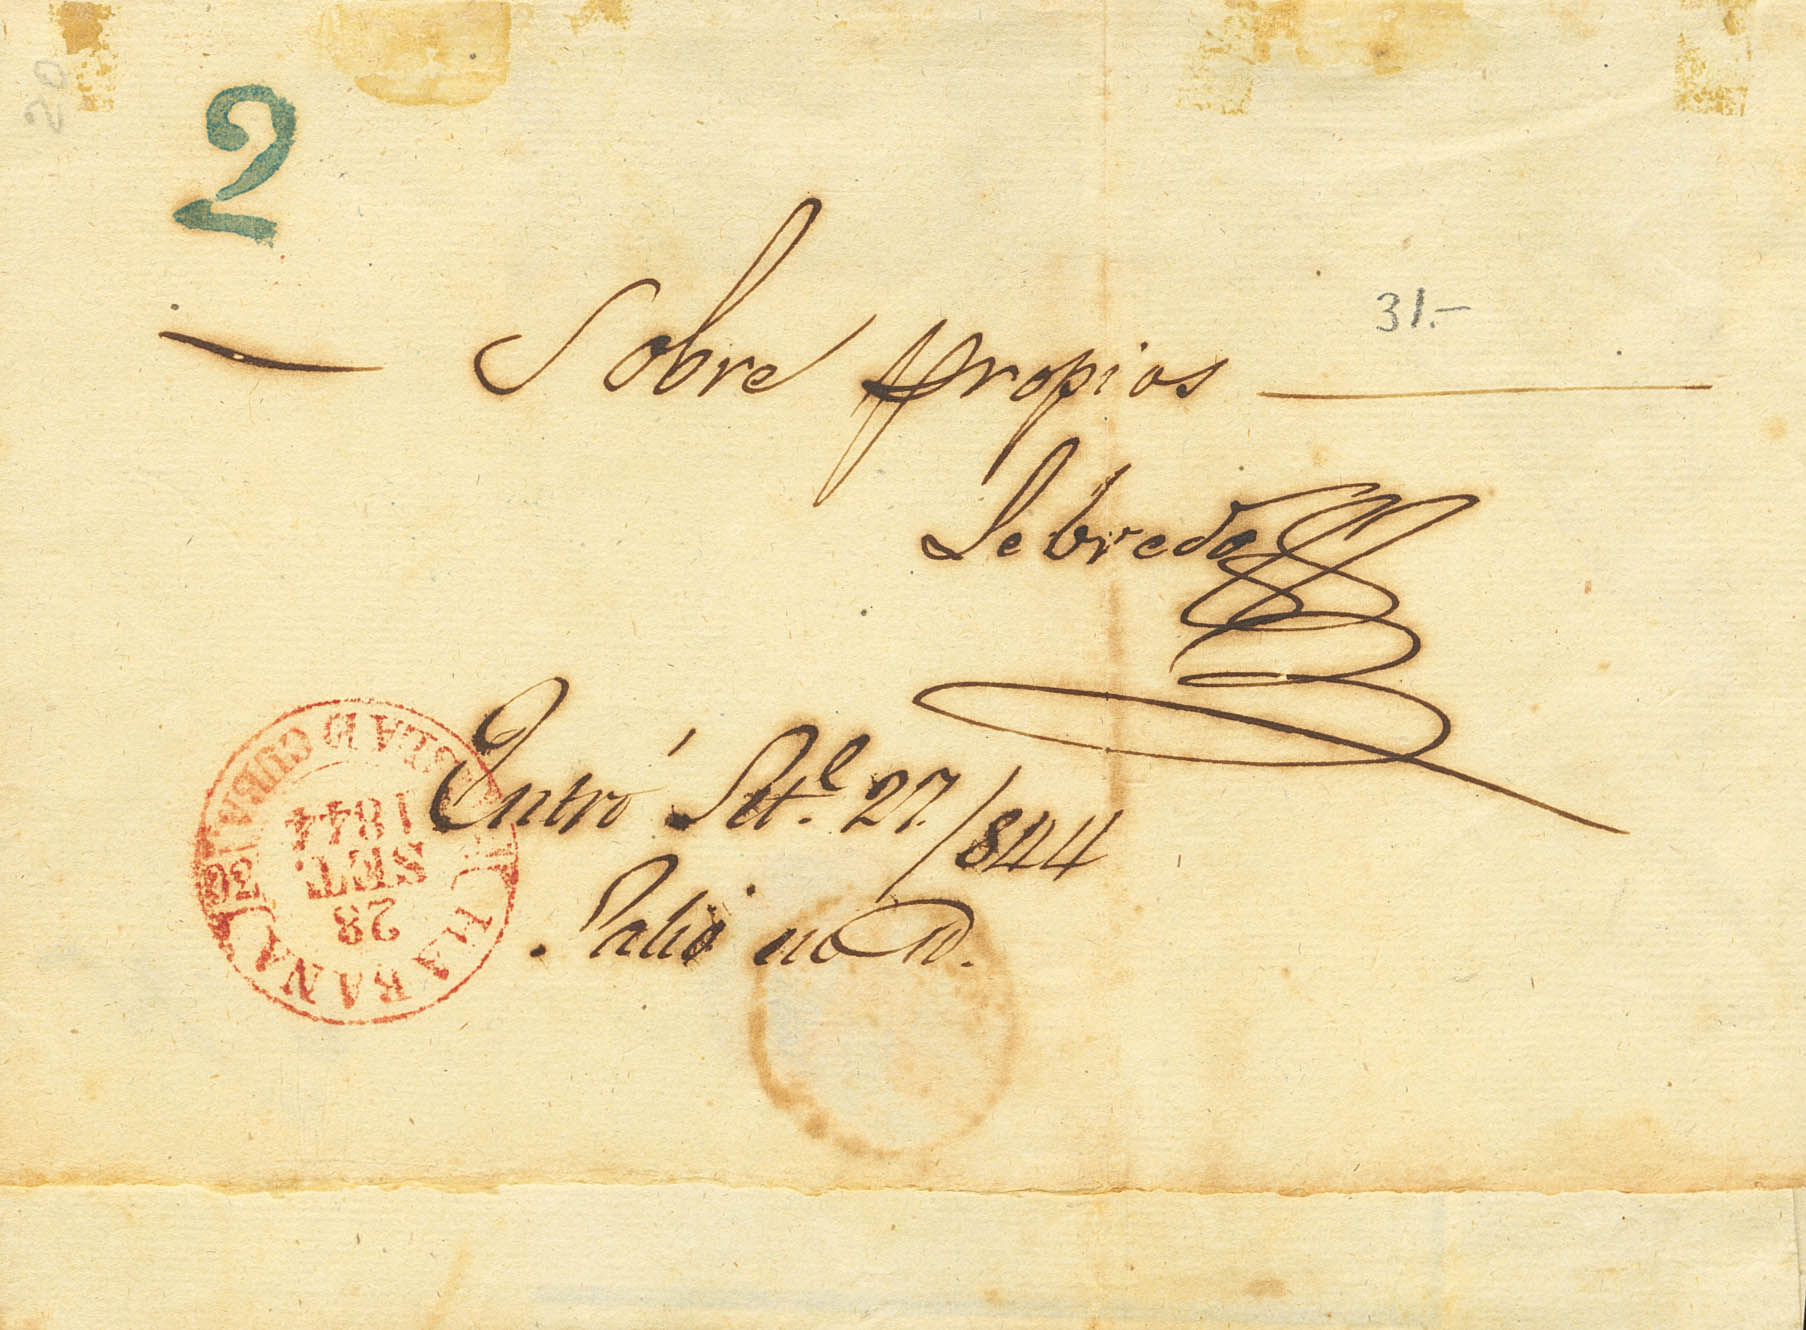 2
31.-
Sobre propios
Lebredo
Entró Set.e 27./844
Salió en D.
HABANA
ISLA D CUBA
28
SET.
1844